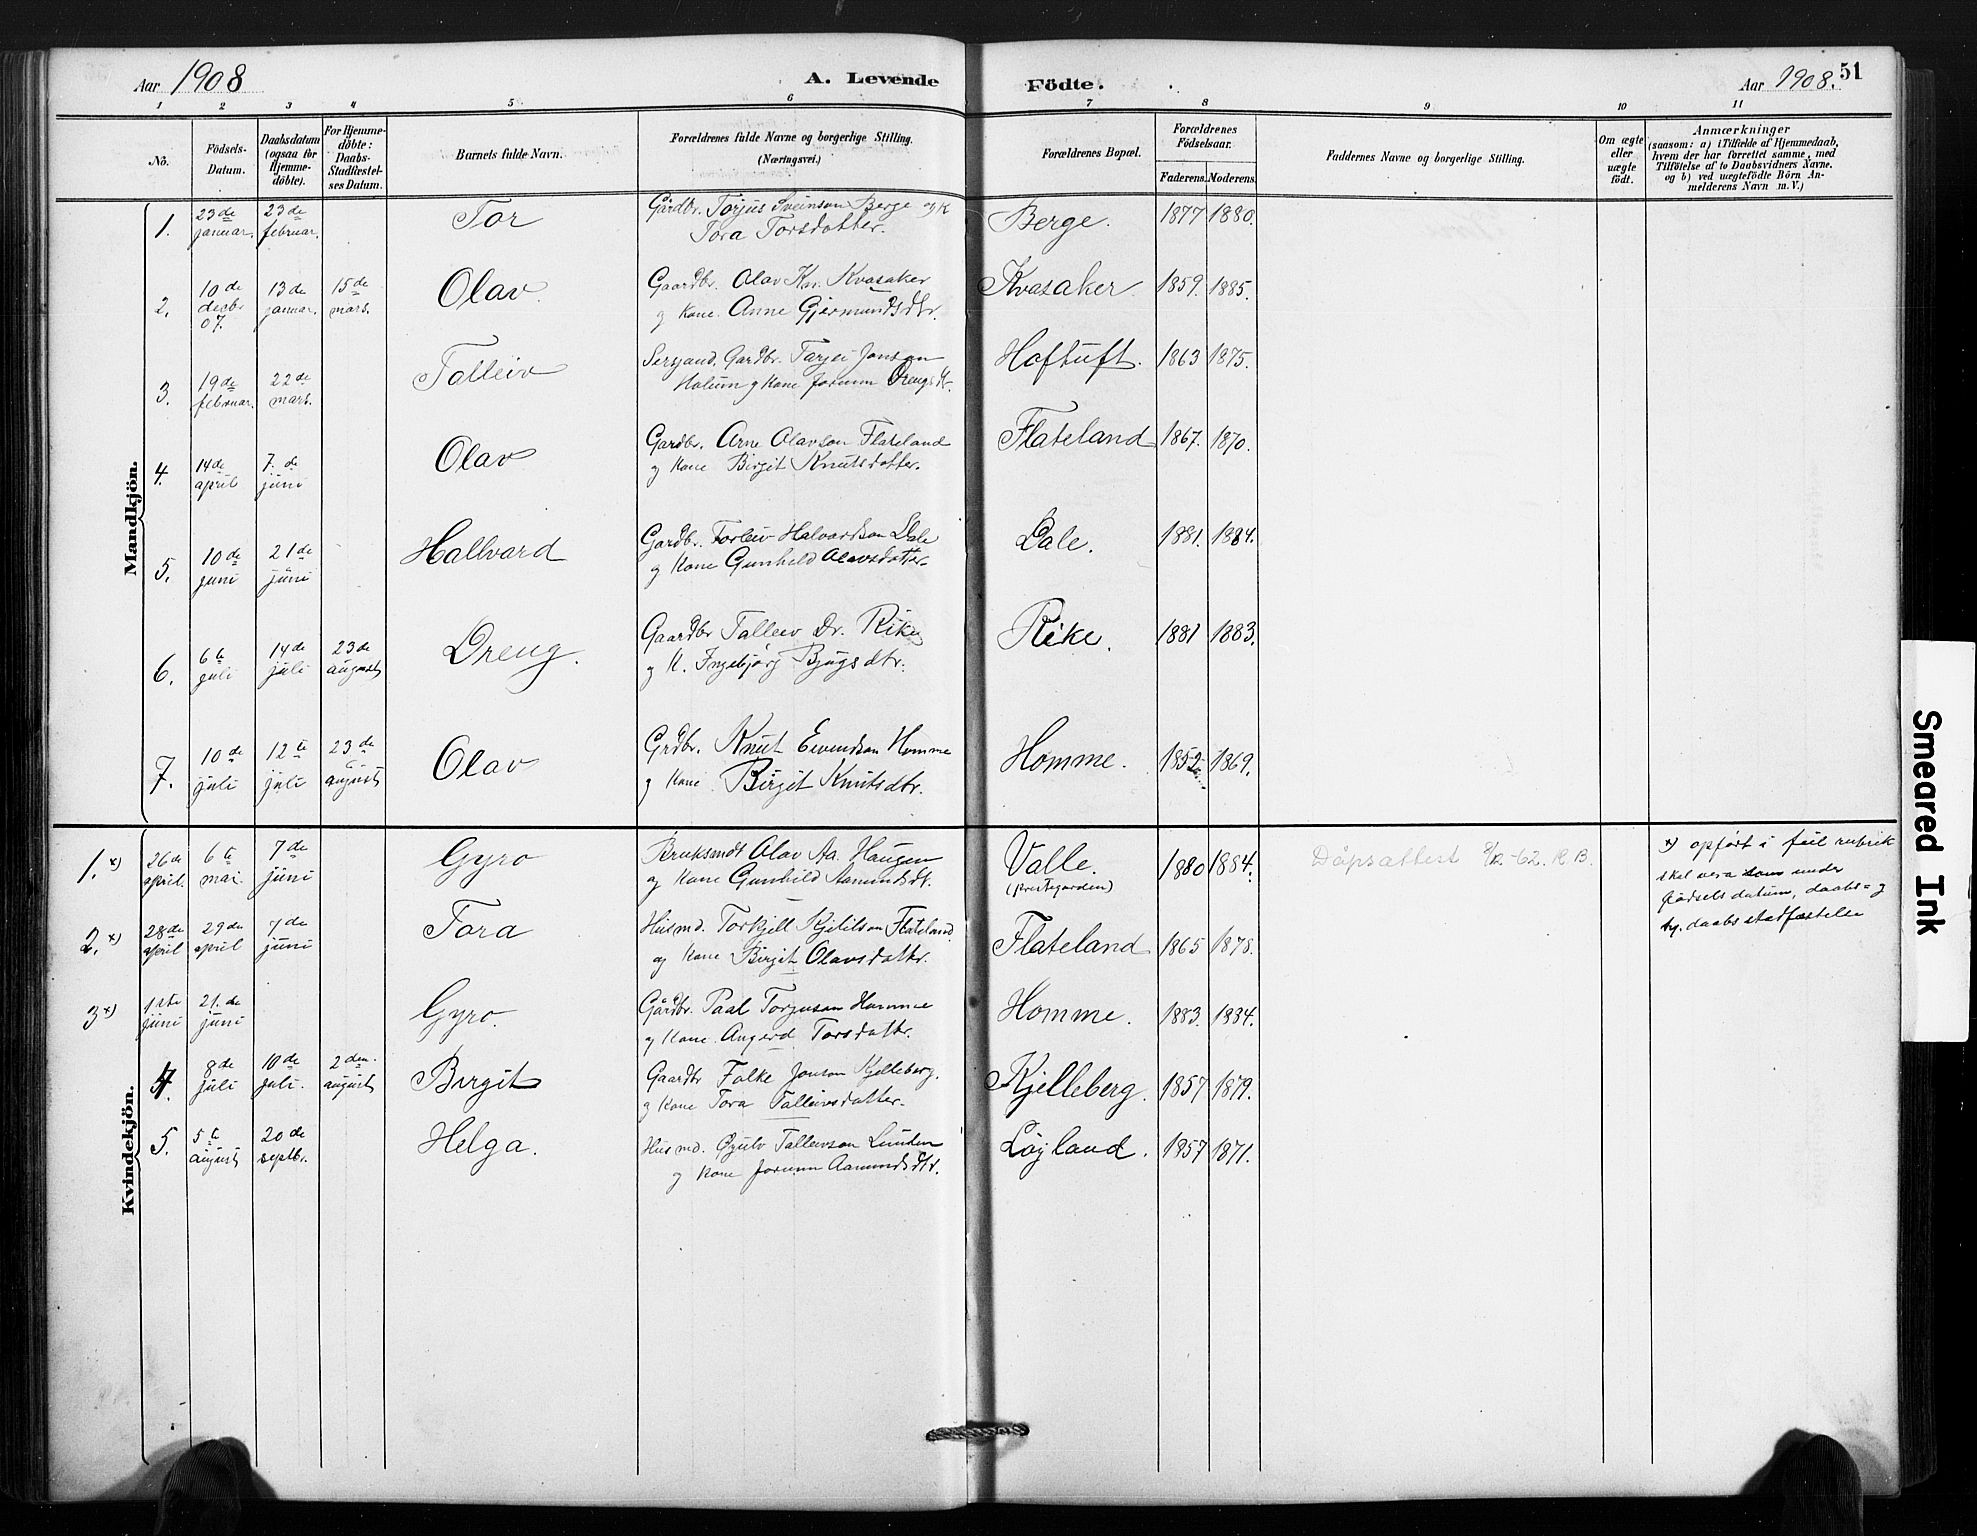 Aar 1908
A. Levende
Födte.
Aar 1908.
51
1 2 3 4 5 6 7 8 9 10 11
No.
Födsels-
Datum.
Daabsdatum
(ogsaa for
Hjemme-
döbte).
For Hjemme-
döbte:
Daabs-
Stadfæstel-
ses Datum.
Barnets fulde Navn.
Forældrenes fulde Navne og borgerlige Stilling.
(Næringsvei.)
Forældrenes Bopæl.
Forældrenes
Födselsaar.
Faderens. Moderens.
Faddernes Navne og borgerlige Stilling.
Om ægte
eller
uægte
födt.
Anmærkninger
(saasom: a) i Tilfælde af Hjemmedaab,
hvem der har forrettet samme, med
Tilföielse af to Daabsvidners Navne.
og b) ved uægtefödte Börn An-
melderens Navn m. V.)
Mandkjön.
1. 23de januar. 23de februar. Tor
Gårdbr. Torjus Sveinson Berge og K
Tora Torsdotter.
Berge. 1877 1880.
2. 10de decbr 07. 13de januar. 15de mars. Olav.
Gaardbr. Olav Kn. Kvasaker
og Kone. Anne Gjermundsdtr.
Kvasaker. 1859. 1885.
3. 19de februar. 22de mars. Talleiv
Sersjand. Gardbr. Tarjei Jonson
Holum og Kone Jorunn Drengsdtr.
Hoftuft. 1863 1875.
4. 14de april 7.de juni Olav
Gardbr. Arne Olavson Flateland
og Kone Birgit Knutsdotter.
Flateland 1867. 1870.
5. 10de juni 21de juni Hallvard
Gardbr. Torleiv Halvardson Dale
og Kone Gunhild Olavsdotter.
Dale. 1881. 1884.
6. 6te juli 14de juli 23de august Dreng.
Gaardbr Talleiv Dr. Rike
og K. Ingebjørg Bjugsdtr.
Rike. 1881 1883.
7. 10de juli 12te juli 23de august Olav
Grdbr. Knut Eivendson Homme
og Kone. Birgit Knutsdtr.
Homme. 1852 1869.
Kvindekjön.
1. x) 26de april. 6te mai. 7de juni Gyro
Bruksmdt Olav Aa. Haugen
og Kone Gunhild Aamundsdt.
Valle.
(Prestegarden)
1880 1884.
Dåpsattest -62. R B.
x) opført i feil rubrik
skal vera som under
fødsels datum, daabs- og
hj. daabs stadfæstelse
2. x) 28de april 29de april 7de juni Tora
Husmd. Torkjell Kjetilson Flateland
og Kone Birgit Olavsdottr.
Flateland 1865 1878.
3 x) 1ste juni 21.de juni Gyro.
Gårdbr. Paal Torjuson Homme
og Kone. Angerd Torsdottr.
Homme. 1883. 1884.
4. 8de juli 10de juli. 2den august Birgit
Gaardbr Folke Jonson Kjelleberg.
og Kone Tora Talleivsdotter.
Kjelleberg. 1857 1879.
5. 5te august 20de septbr. Helga.
Husmd. Gjulv Talleivson Lunden
og Kone Jorunn Aamundsdtr.
Løyland. 1857 1871.
Smeared Ink